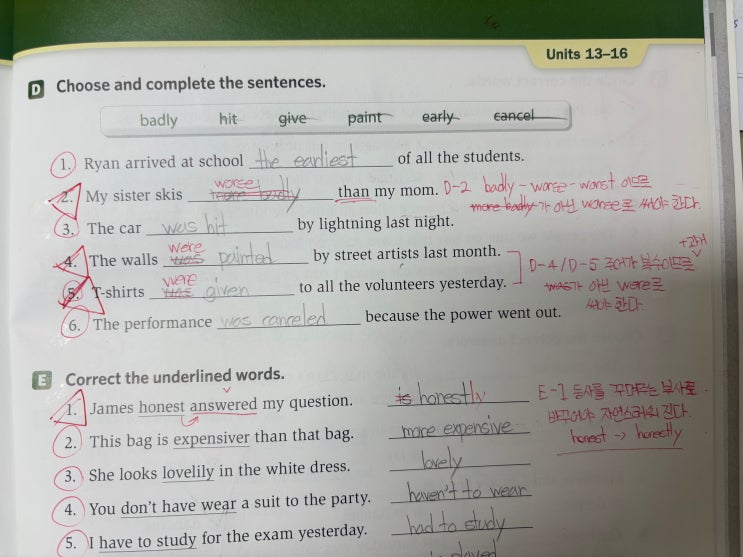 Units 13–16
D Choose and complete the sentences.
badly hit give paint early cancel
1. Ryan arrived at school the earliest of all the students.
worse
2. My sister skis more badly than my mom. D-2 badly - worse - worst 이므로
more badly가 아닌 worse로 써야 한다.
3. The car was hit by lightning last night.
were
4. The walls was painted by street artists last month.
+과거
D-4/D-5 주어가 복수이므로
were
5. T-shirts was given to all the volunteers yesterday.
was가 아닌 were로
써야 한다.
6. The performance was canceled because the power went out.
E Correct the underlined words.
1. James honest answered my question. is honestly
E-1 동사를 꾸며주는 부사로
바꾸어야 자연스러워 진다.
honest → honestly
2. This bag is expensiver than that bag. more expensive
3. She looks lovelily in the white dress. lovely
4. You don't have wear a suit to the party. haven't to wear
5. I have to study for the exam yesterday. had to study
played